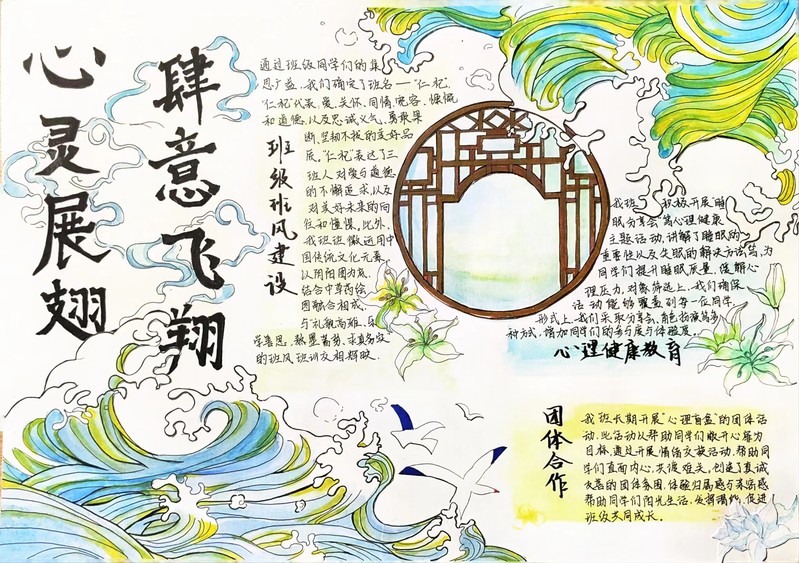 心灵展翅
肆意飞翔
班级班风建设
通过班级同学们的集
思广益,我们确定了班名——“仁杞”,
“仁杞”代表,爱、关怀、同情、宽容、慷慨
和道德,以及忠诚、义气、勇敢果
断、坚韧不拔的美好品
质。“仁杞”表达了三
班人对爱与道德
的不懈追求,以及
对美好未来的向
往和憧憬。此外,
我班班徽运用中
国传统文化元素,
以阴阳图为底,
结合中草药绘
图融合相成、
与礼貌高雅、乐
学善思、勤
的班风班训交相辉映。
我班 积极开展睡
眠分享会等心理健康
主题活动,讲解了睡眠的
重要性以及失眠的解决方法等,为
同学们提升睡眠质量,缓解心
理压力,对象筛选上,我们确保
活动能够覆盖到每一位同学,
形式上,我们采取分享会、角色扮演等多
种方式,增加同学们的参与度与体验度。
心理健康教育
团体合作
我班长期开展“心理盲盒”的团体活
动,此活动从帮助同学们敞开心扉为
目标,通过开展情绪交换活动,帮助同
学们直面内心,共渡难关,创造了真诚
友善的团体氛围,体验归属感与亲密感
帮助同学们阳光生活,发挥潜能,促进
班级共同成长。